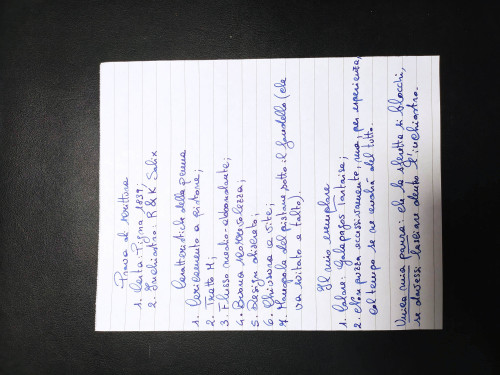 Prova di scrittura
1. Penta Pigna 1839;
2. Inchiostro: R & K Salix
Caratteristiche della penna
1. Caricamento a pistone;
2. Tratto M;
3. Flusso medio-abbondante;
4. Buona scorrevolezza;
5. Design obsoleto;
6. Chiusura a vite;
7. Manopola del pistone sotto il fondello (che
va svitato e tolto).
Il mio esemplare
1. Colore: Galapagos turchese;
2. Non puzza eccessivamente, ma, per esperienza,
col tempo se ne andrà del tutto.
Unica mia paura: che lo stantuffo si blocchi,
se dovessi lasciare dentro l'inchiostro.